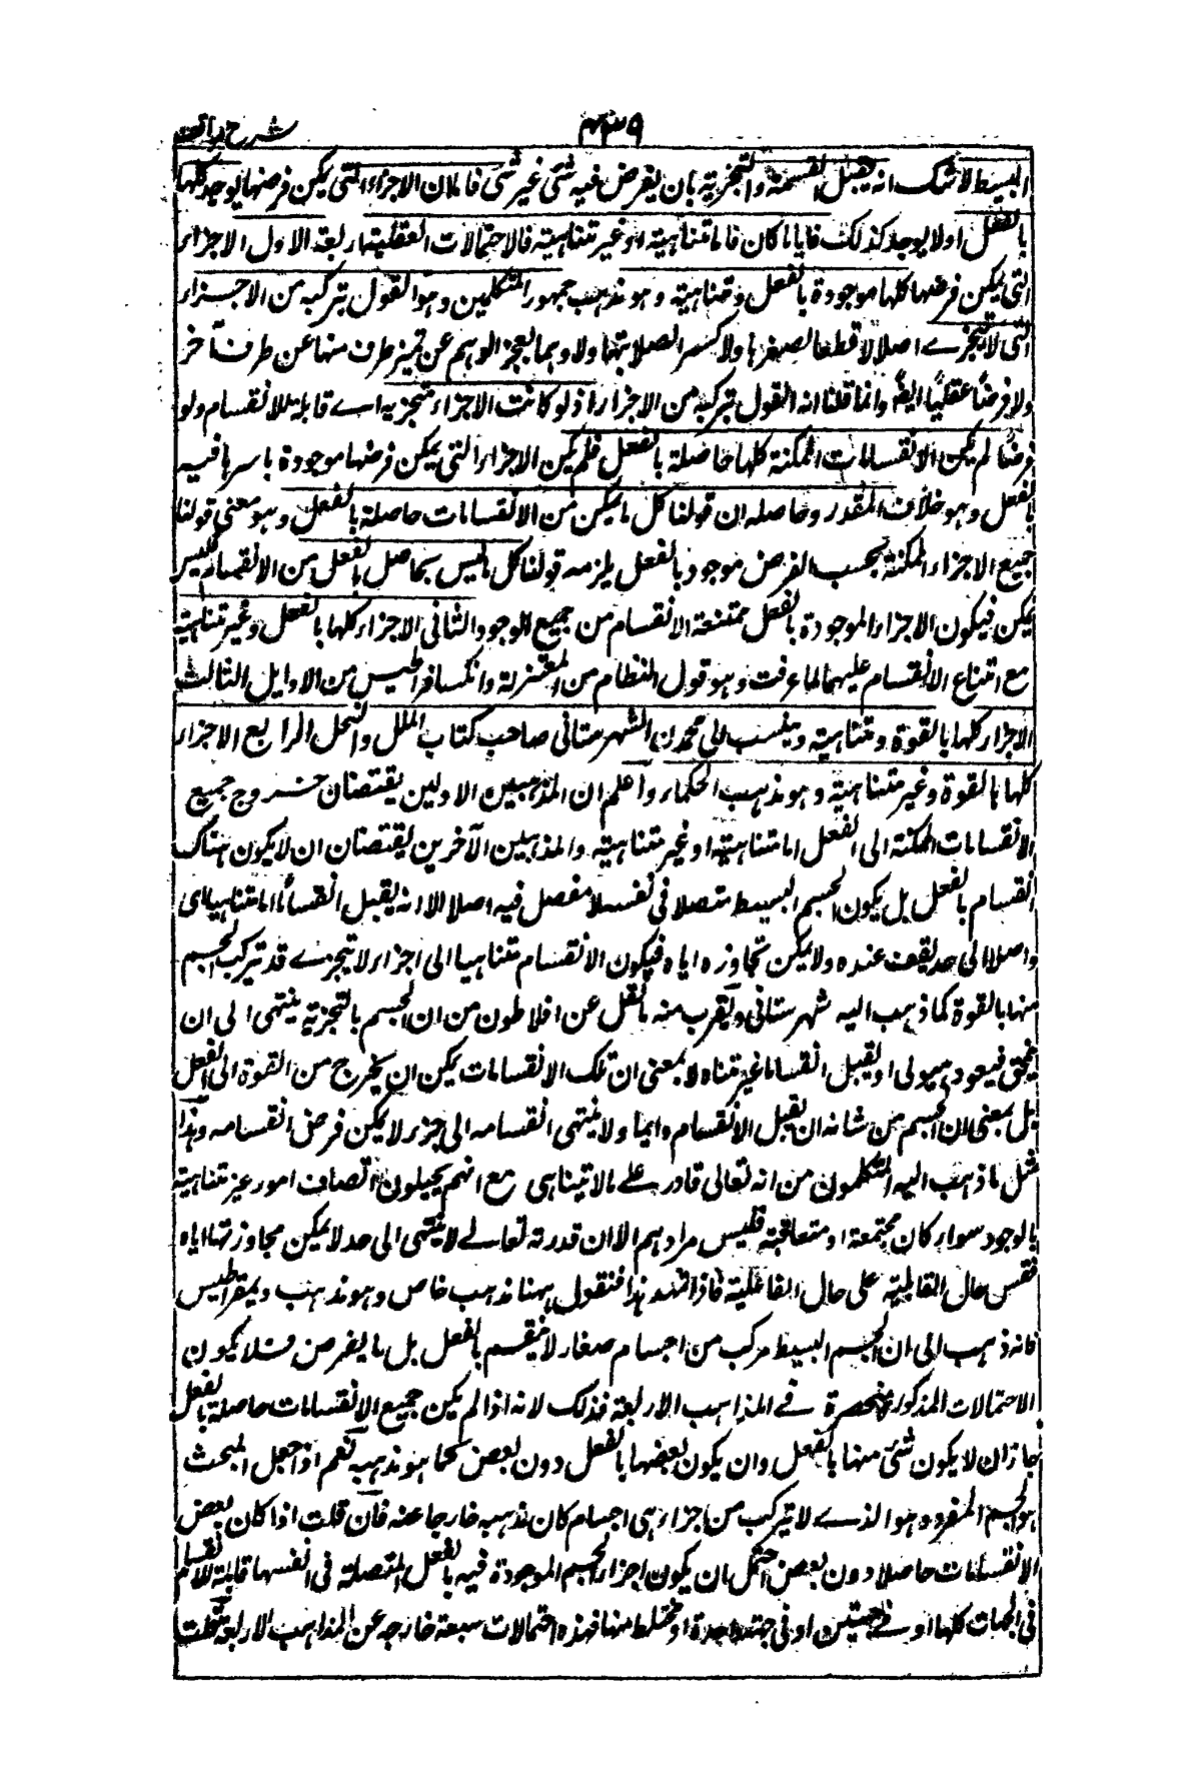 شرح مواقف
٤٣٩
البسيط لا شك انه يقبل القسمة والتجزية بان يفرض فيه شئ غير شئ فاما ان الاجزاء التى يمكن فرضها يوجد كلها
بالفعل اولا يوجد كذلك فايا ما كان فاما متناهية او غير متناهية فالاحتمالات العقلية اربعة الاول الاجزاء
التى يمكن فرضها كلها موجودة بالفعل ومتناهية وهو مذهب جمهور المتكلمين وهو القول بتركبه من الاجزاء
التى لا تتجزے اصلا لا قطعا لصغرها ولا كسرا لصلابتها ولا وهما لعجز الوهم عن تميز طرف منها عن طرف آخر
ولا فرضًا عقليًا ايضًا وانما قلنا انه القول بتركبه من الاجزاء اذ لو كانت الاجزاء متجزية اے قابلة للانقسام ولو
فرضًا لم يكن الانقسامات الممكنة كلها حاصلة بالفعل فلم يكن الاجزاء التى يمكن فرضها موجودة باسرها فيه
بالفعل وهو خلاف المقدر وحاصله ان قولنا كل ما يمكن من الانقسامات حاصلة بالفعل وهو معنى قولنا
جميع الاجزاء الممكنة بحسب الفرض موجود بالفعل يلزمه قولنا كل ما ليس بحاصل بالفعل من الانقسام فليس
يمكن فيكون الاجزاء الموجودة بالفعل ممتنعة الانقسام من جميع الوجوه الثانى الاجزاء كلها بالفعل وغير متناهية
مع امتناع الانقسام عليها لما عرفت وهو قول النظام من المعتزلة وانكسافراطيس من الاوايل الثالث
الاجزاء كلها بالقوة ومتناهية وينسب الى محمد ن الشهرستانى صاحب كتاب الملل والنحل الرابع الاجزاء
كلها بالقوة وغير متناهية وهو مذهب الحكماء واعلم ان المذهبين الاولين يقتضان خروج جميع
الانقسامات الممكنة الى الفعل اما متناهية او غير متناهية والمذهبين الآخرين يقتضان ان لا يكون هناك
انقسام بالفعل بل يكون الجسم البسيط متصلا فى نفسه لا مفصل فيه اصلا الا انه يقبل انقسامًا اما متناهيا اى
واصلا الى حد يقف عنده ولا يمكن تجاوزه اياه فيكون الانقسام متناهيا الى اجزاء لا تتجزے قد تركب الجسم
منها بالقوة كما ذهب اليه شهرستانى ويقرب منه ما نقل عن افلاطون من ان الجسم بالتجزية ينتهى الى ان
ينمحق فيعود هيولى او يقبل انقساما غير متناه لا بمعنى ان تلك الانقسامات يمكن ان يخرج من القوة الى الفعل
بل بمعنى ان الجسم من شانه ان يقبل الانقسام دايما ولا ينتهى انقسامه الى جزء لا يمكن فرض انقسامه وهذا
مثل ما ذهب اليه المتكلمون من انه تعالى قادر على ما لا يتناهى مع انهم يحيلون اتصاف امور غير متناهية
بالوجود سواء كان مجتمعة او متعاقبة فليس مرادهم الا ان قدرته تعالے لا ينتهى الى حد لا يمكن مجاوزتها اياه
فقس حال القابلية على حال الفاعلية فاذا تمهد هذا فنقول ههنا مذهب خاص وهو مذهب ديمقراطيس
فانه ذهب الى ان الجسم البسيط مركب من اجسام صغار لا ينقسم بالفعل بل بالفرض فلا يكون
الاحتمالات المذكورة منحصرة فے المذاهب الاربعة فذلك لانه اذا لم يكن جميع الانقسامات حاصلة بالفعل
جاز ان لا يكون شئ منها بالفعل وان يكون بعضها بالفعل دون بعض كما هو مذهبه نعم اذا جعل المبحث
هو الجسم المفرد وهو الذے لا يتركب من اجزاء هى اجسام كان مذهبه خارجا عنه فان قلت اذا كان بعض
الانقسامات حاصلا دون بعض احتمل ان يكون اجزاء الجسم الموجودة فيه بالفعل المتصلة فى انفسها قابلة للانقسام
فى الجهات كلها او فے جهتين او فى جهة واحدة او مختلط منها فهذه احتمالات سبعة خارجه عن المذاهب الاربعة قلت